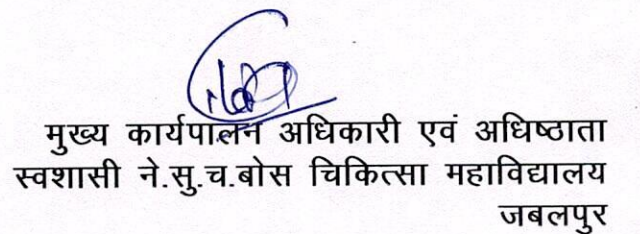 मुख्य कार्यपालन अधिकारी एवं अधिष्ठाता
स्वशासी ने.सु.च.बोस चिकित्सा महाविद्यालय
जबलपुर